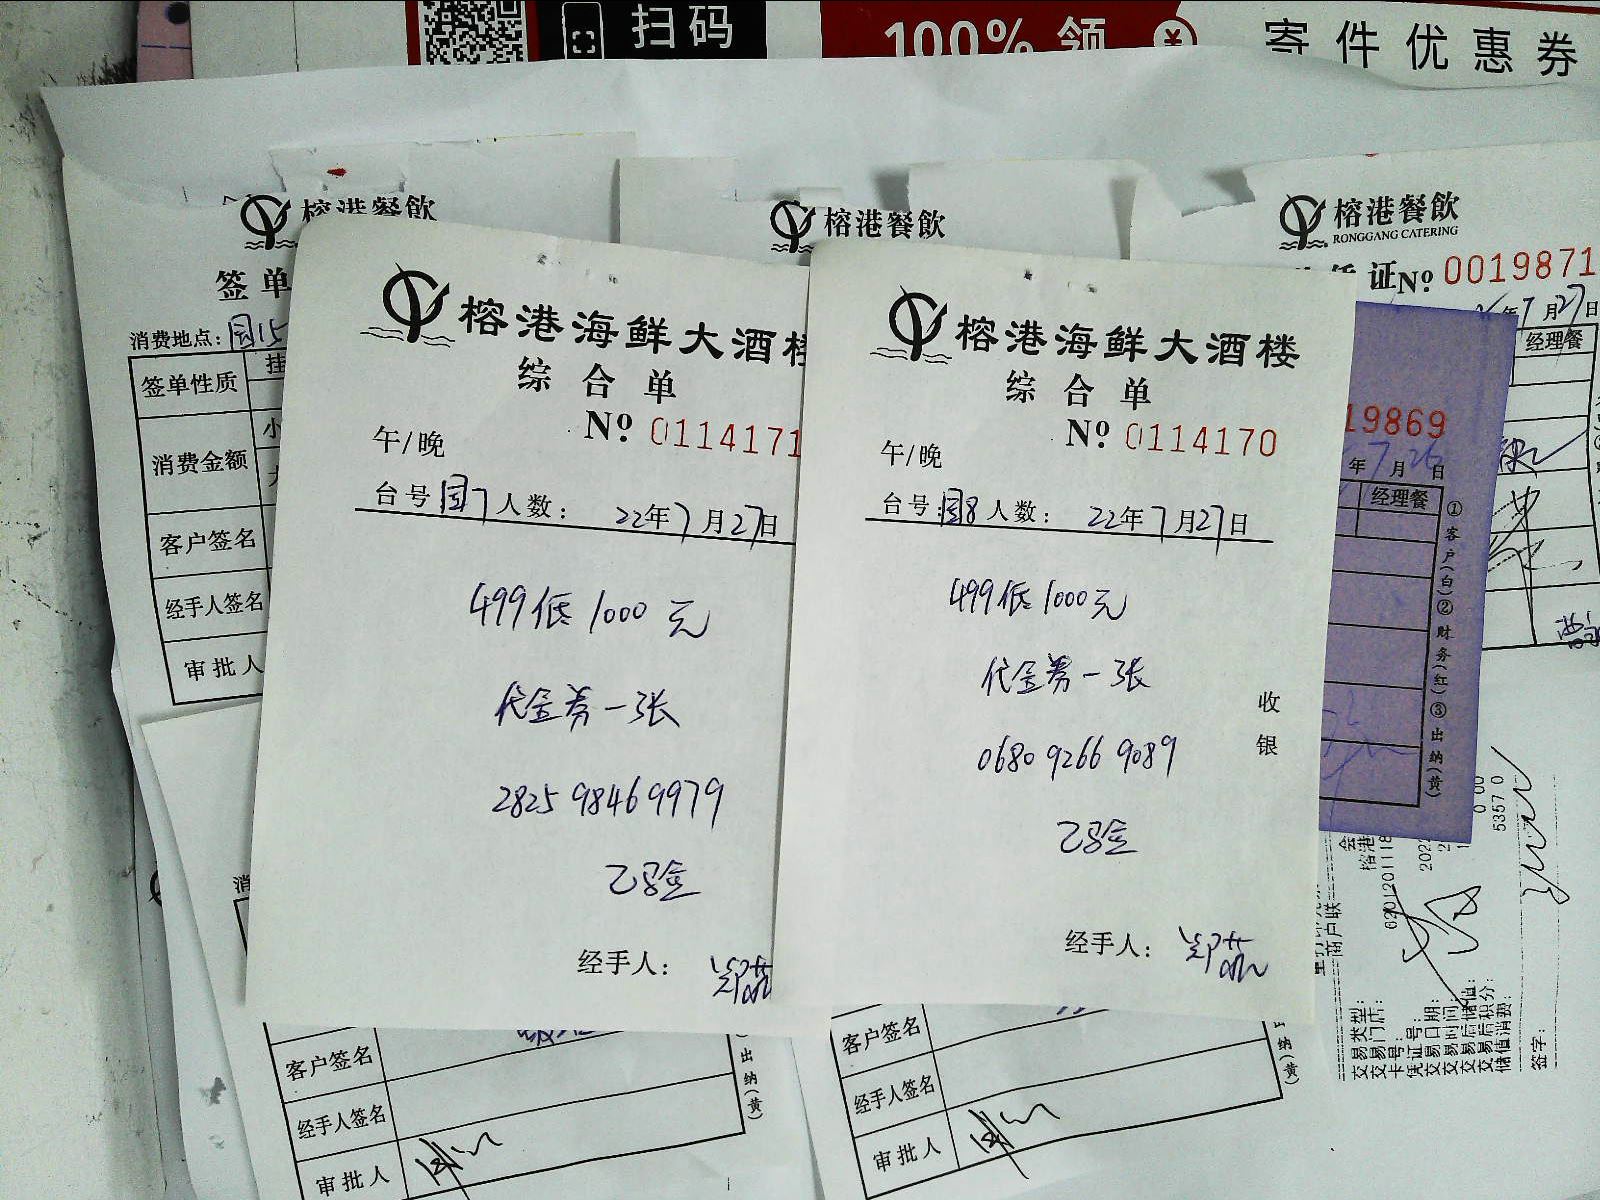 扫码
100%领
寄件优惠券
榕港餐飲
签单
消费地点：园15
签单性质
挂
消费金额
小
客户签名
经手人签名
审批人
榕港餐飲
榕港餐飲
RONGGANG CATERING
证No 0019871
年7月27日
经理餐
榕港海鲜大酒楼
综合单
No 0114171
午/晚
台号园7人数：22年7月27日
499低1000元
代金券一张
2825 9846 9979
已验
经手人：
榕港海鲜大酒楼
综合单
No 0114170
午/晚
台号：园8人数：22年7月27日
499低1000元
代金券一张
0680 9266 9089
已验
收银
经手人：
19869
年7月26日
经理餐
①客户(白)②财务(红)③出纳(黄)
客户签名
经手人签名
审批人
出纳(黄)
客户签名
经手人签名
审批人
纳(黄)
商户联
交易类型：
交易门店：
卡号：
凭证号：
交易日期：
交易时间：
交易后储值：
交易后积分：
储值消费：
签字：